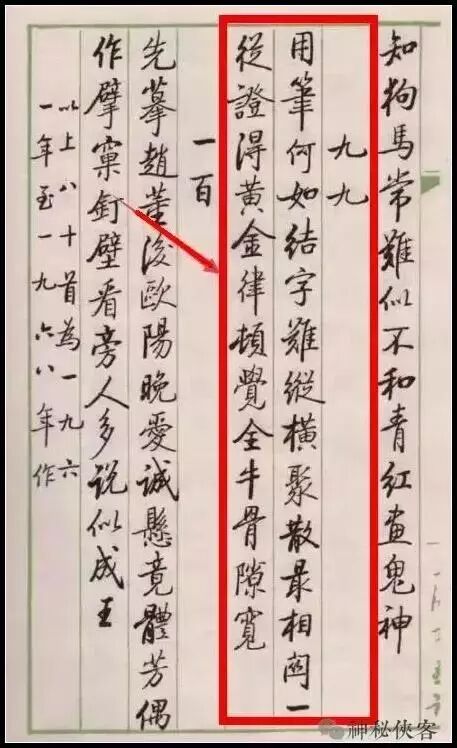 知狗馬常難似不和青紅畫鬼神
九九
用筆何如結字難縱橫聚散最相關一
從證得黃金律頓覺全牛骨隙寬
一百
先摹趙董後歐陽晚愛誠懸竟體芳偶
作擘窠釘壁看旁人多說似成王
以上八十首為一九六
一年至一九六八年作
神秘侠客